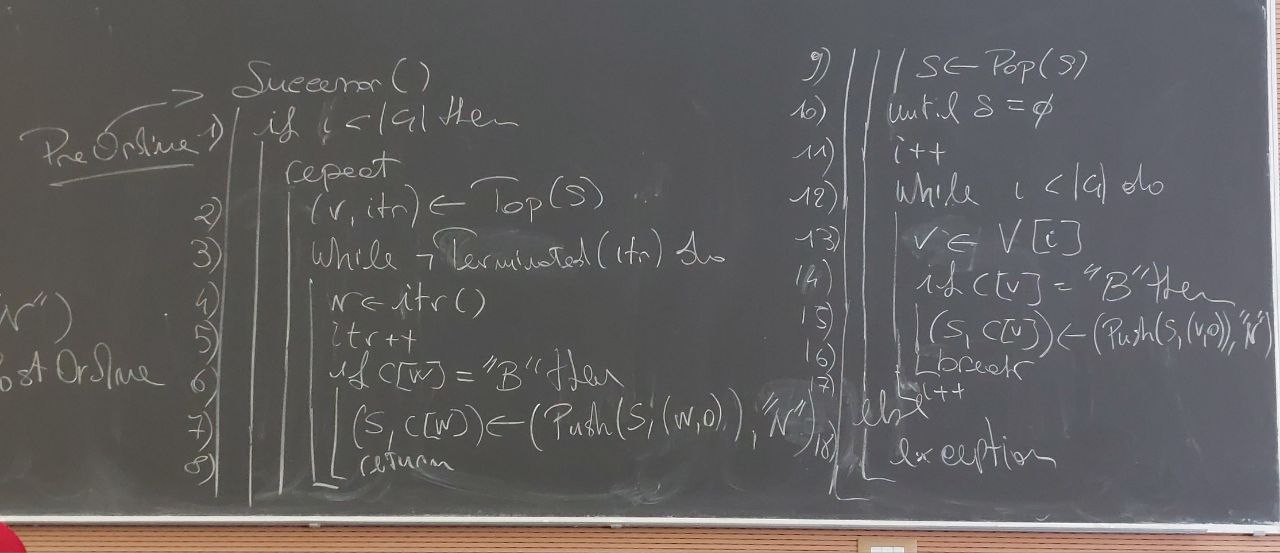 Successor()
PreOrdine
1) if i < |G| then
repeat
2) (v, itr) ← Top(S)
3) while ¬Terminated(itr) do
4) w ← itr()
5) itr++
6) if C[w] = "B" then
7) (S, C[w]) ← (Push(S, (w,0)), "N")
8) return
N")
ostOrdine
9) S ← Pop(S)
10) until S = ∅
11) i++
12) while i < |G| do
13) v ← V[i]
14) if C[v] = "B" then
15) (S, C[v]) ← (Push(S, (v,0)), "N")
16) break
17) i++
else
18) exception